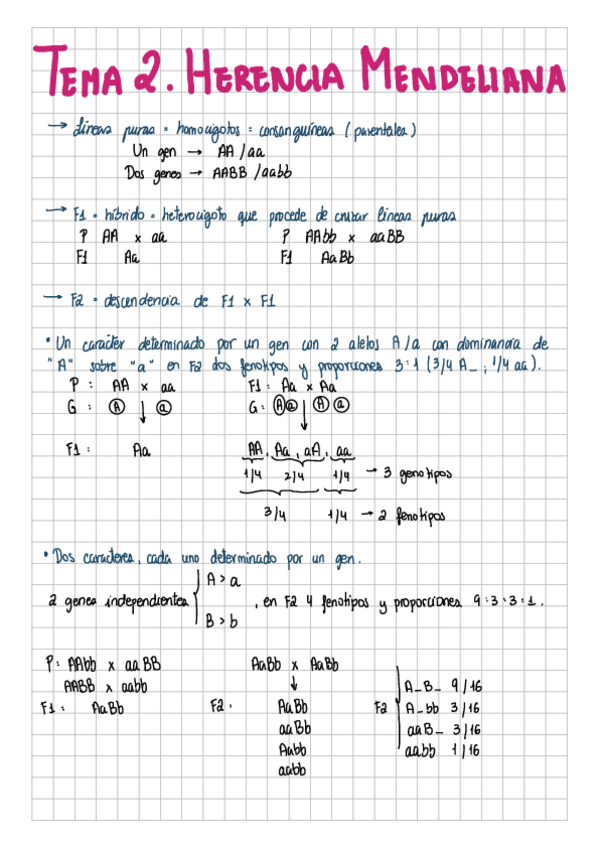 TEMA 2. HERENCIA MENDELIANA
→ Líneas puras = homocigotos = consanguíneas (parentales)
Un gen → AA/aa
Dos genes → AABB/aabb
→ F1 = híbrido = heterocigoto que procede de cruzar líneas puras
P AA x aa P AAbb x aaBB
F1 Aa F1 AaBb
→ F2 = descendencia de F1 x F1
• Un carácter determinado por un gen con 2 alelos A/a con dominancia de
"A" sobre "a" en F2 dos fenotipos y proporciones 3:1 (3/4 A_ ; 1/4 aa).
P : AA x aa F1 : Aa x Aa
G : A ↓ a G : A a ↓ A a
F1 : Aa AA, Aa, aA, aa
1/4 2/4 1/4 → 3 genotipos
3/4 1/4 → 2 fenotipos
• Dos caracteres, cada uno determinado por un gen.
A > a
2 genes independientes , en F2 4 fenotipos y proporciones 9:3:3:1.
B > b
P: AAbb x aaBB AaBb x AaBb
AABB x aabb ↓ A_B_ 9/16
F1 : AaBb F2 : AaBb F2 A_bb 3/16
aaBb aaB_ 3/16
Aabb aabb 1/16
aabb